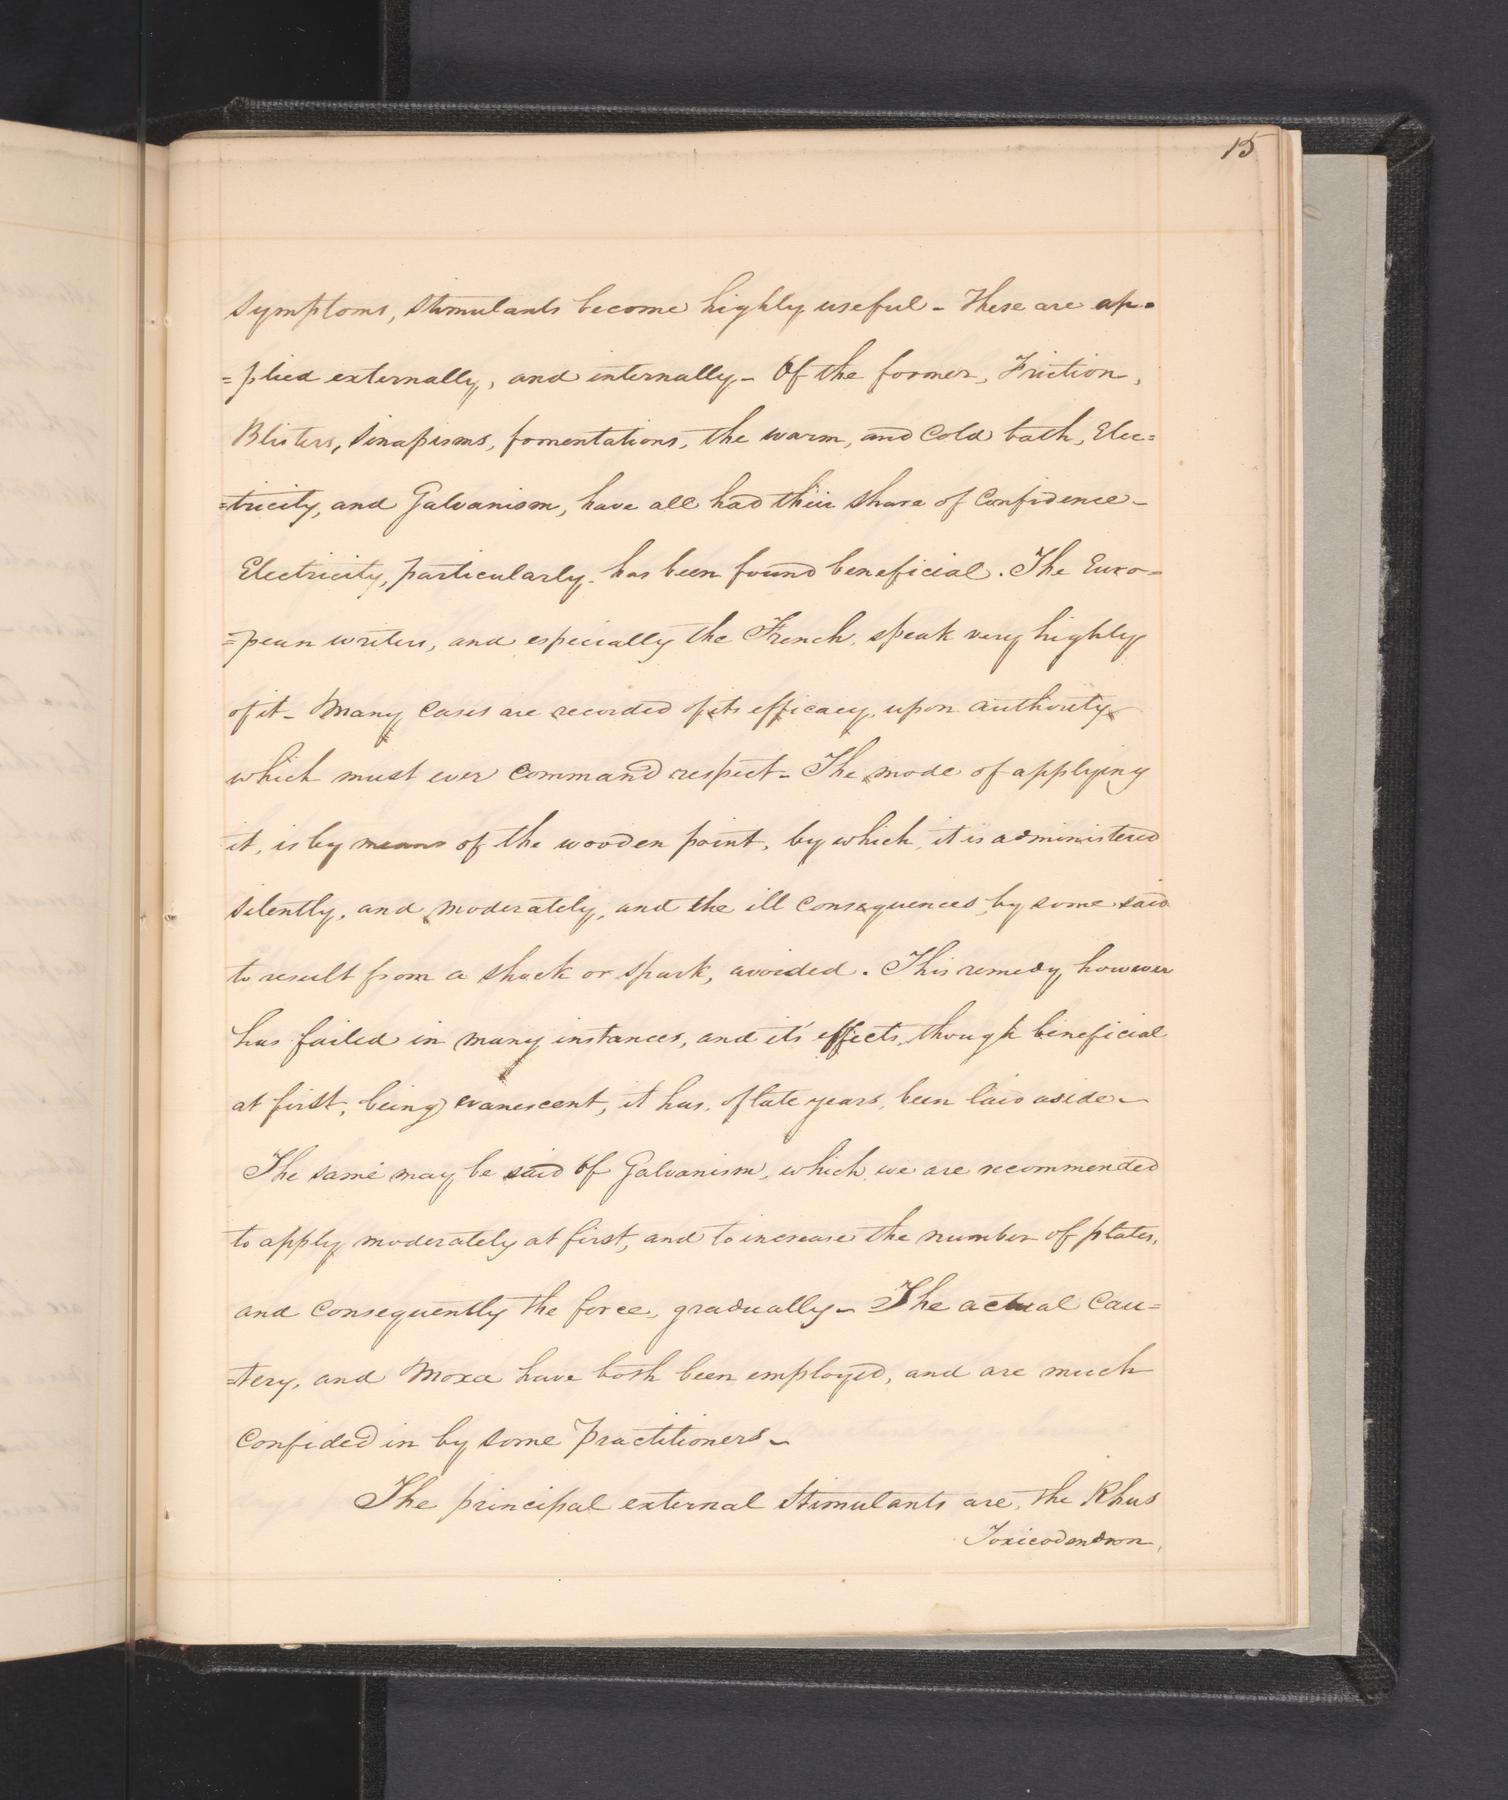 15
symptoms, stimulants become highly useful - These are ap=
=plied externally, and internally - Of the former, Friction,
Blisters, Sinapisms, fomentations, the warm, and Cold bath, Elec=
=tricity, and Galvanism, have all had their share of Confidence -
Electricity, particularly, has been found beneficial. The Euro=
=pean writers, and especially the French, speak very highly
of it - Many Cases are recorded of its efficacy, upon authority
which must ever command respect - The mode of applying
it, is by means of the wooden point, by which, it is administered
silently, and moderately, and the ill consequences, by some said
to result from a shock or spark, avoided. This remedy, however
has failed in many instances, and it's effects, though beneficial
at first, being evanescent, it has, of late years, been laid aside -
The same may be said of Galvanism, which, we are recommended
to apply moderately at first, and to increase the number of plates,
and Consequently the force, gradually - The actual Cau=
=tery, and Moxa have both been employed, and are much
Confided in by some Practitioners -
The principal external stimulants are, the Rhus
Toxicodendron,